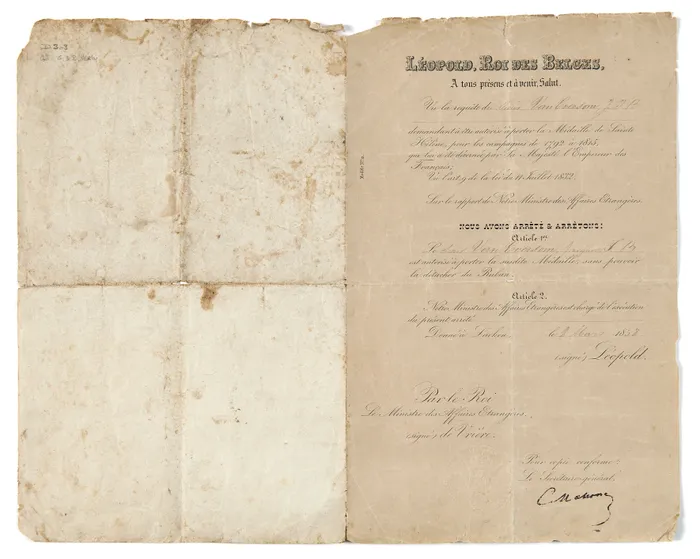 LÉOPOLD, ROI DES BELGES,
A tous présens et à venir, Salut.
Vu la requête de
demandant à être autorisé à porter la Médaille de Sainte
Hélène, pour les campagnes de 1792 à 1815,
qui lui a été décernée par Sa Majesté l'Empereur des
Français;
Vu l'art. 9 de la loi du 11 Juillet 1832.
Sur le rapport de Notre Ministre des Affaires Etrangères.
NOUS AVONS ARRÊTÉ & ARRÊTONS:
Article 1er
Le Sieur
est autorisé à porter la susdite Médaille, sans pouvoir
la détacher du Ruban.
Article 2.
Notre Ministre des Affaires Etrangères est chargé de l'exécution
du présent arrêté.
Donné à Laeken, le 1858
(signé) Léopold.
Par le Roi
Le Ministre des Affaires Etrangères.
(signé) de Vrière.
Pour copie conforme:
Le Secrétaire général,